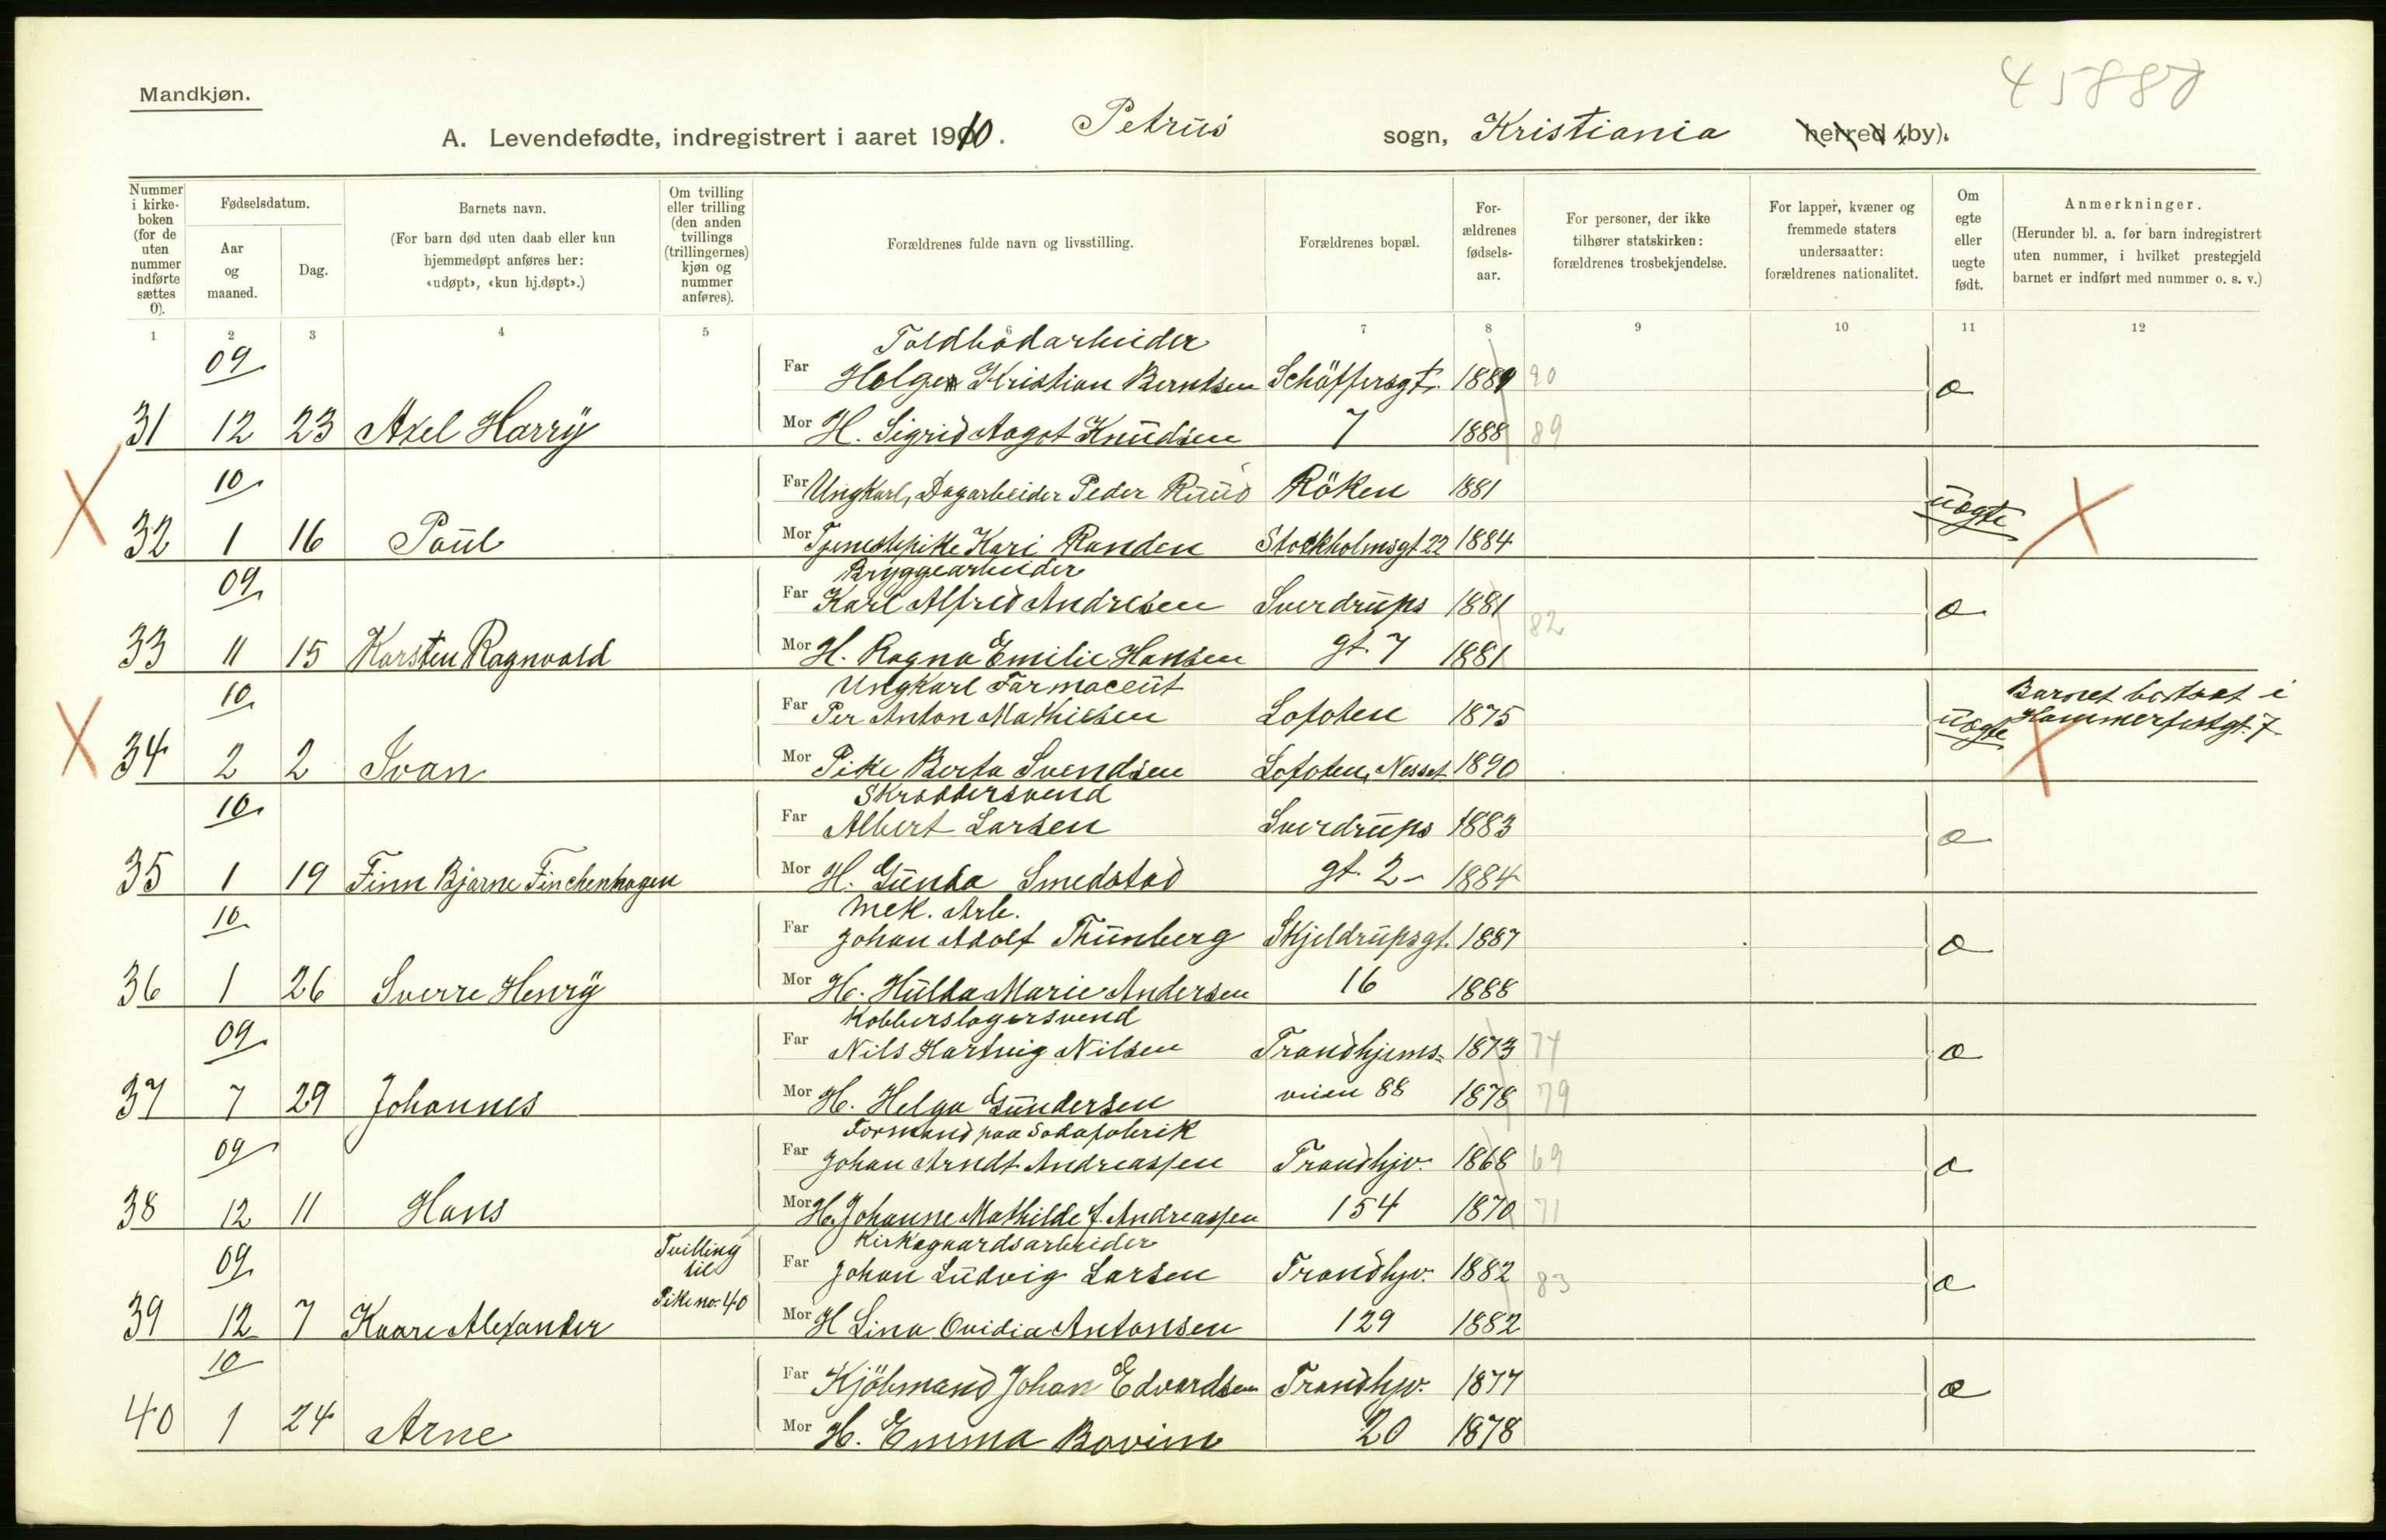 45880
Mandkjøn.
A. Levendefødte, indregistrert i aaret 1910. Petrus sogn, Kristiania herred (by).
Nummer i kirke-boken (for de uten nummer indførte sættes 0).
Fødselsdatum.
Aar og maaned.
Dag.
Barnets navn.
(For barn død uten daab eller kun hjemmedøpt anføres her: «udøpt», «kun hj.døpt».)
Om tvilling eller trilling (den anden tvillings (trillingernes) kjøn og nummer anføres).
Forældrenes fulde navn og livsstilling.
Forældrenes bopæl.
For-ældrenes fødsels-aar.
For personer, der ikke tilhører statskirken: forældrenes trosbekjendelse.
For lapper, kvæner og fremmede staters undersaatter: forældrenes nationalitet.
Om egte eller uegte født.
Anmerkninger.
(Herunder bl. a. for barn indregistrert uten nummer, i hvilket prestegjeld barnet er indført med nummer o. s. v.)
1 2 3 4 5 6 7 8 9 10 11 12
09 Toldbodarbeider
Far Holger Kristian Berntsen Schöffersgt. 1889 90 æ
31 12 23 Axel Harry Mor H. Sigrid Aagot Knudsen 7 1888 89
10 Far Ungkarl, Dagarbeider Peder Ruud Röken 1881 uægte
32 1 16 Paul Mor Tjenestepike Kari Randen Stockholmsgt 22 1884
09 Bryggearbeider
Far Karl Alfred Andresen Sverdrups 1881 æ
82
33 11 15 Karsten Ragnvald Mor H. Ragna Emilie Hansen gt. 7 1881
10 Ungkarl Farmaceut Barnet bortsat i
Far Per Anton Mathiesen Lofoten 1875 uægte Hammerfestgt. 7
34 2 2 Ivan Mor Pike Berta Svendsen Lofoten, Nesset 1890
10 Skræddersvend
Far Albert Larsen Sverdrups 1883 æ
35 1 19 Finn Bjarne Finchenhagen Mor H. Gunda Smedstad gt. 2 1884
10 Mek. Arb.
Far Johan Adolf Thunberg Skjeldrupsgt. 1887 æ
36 1 26 Sverre Henry Mor H. Hulda Marie Andersen 16 1888
09 Kobberslagersvend
Far Nils Hartvig Nilsen Trondhjems- 1873 74 æ
37 7 29 Johannes Mor H. Helga Gundersen veien 88 1878 79
09 Formand paa Sodafabrik
Far Johan Arndt Andreassen Trondhjv. 1868 69 æ
38 12 11 Hans Mor H. Johanne Mathilde f. Andreassen 154 1870 71
09 Tvilling til Kirkegaardsarbeider
Far Johan Ludvig Larsen Trondhjv. 1882 83 æ
39 12 7 Kaare Alexander Pike no. 40 Mor H Lina Ovidia Antonsen 129 1882
10 Far Kjöbmand Johan Edvardsen Trondhjv. 1877 æ
40 1 24 Arne Mor H. Emma Bovim 20 1878